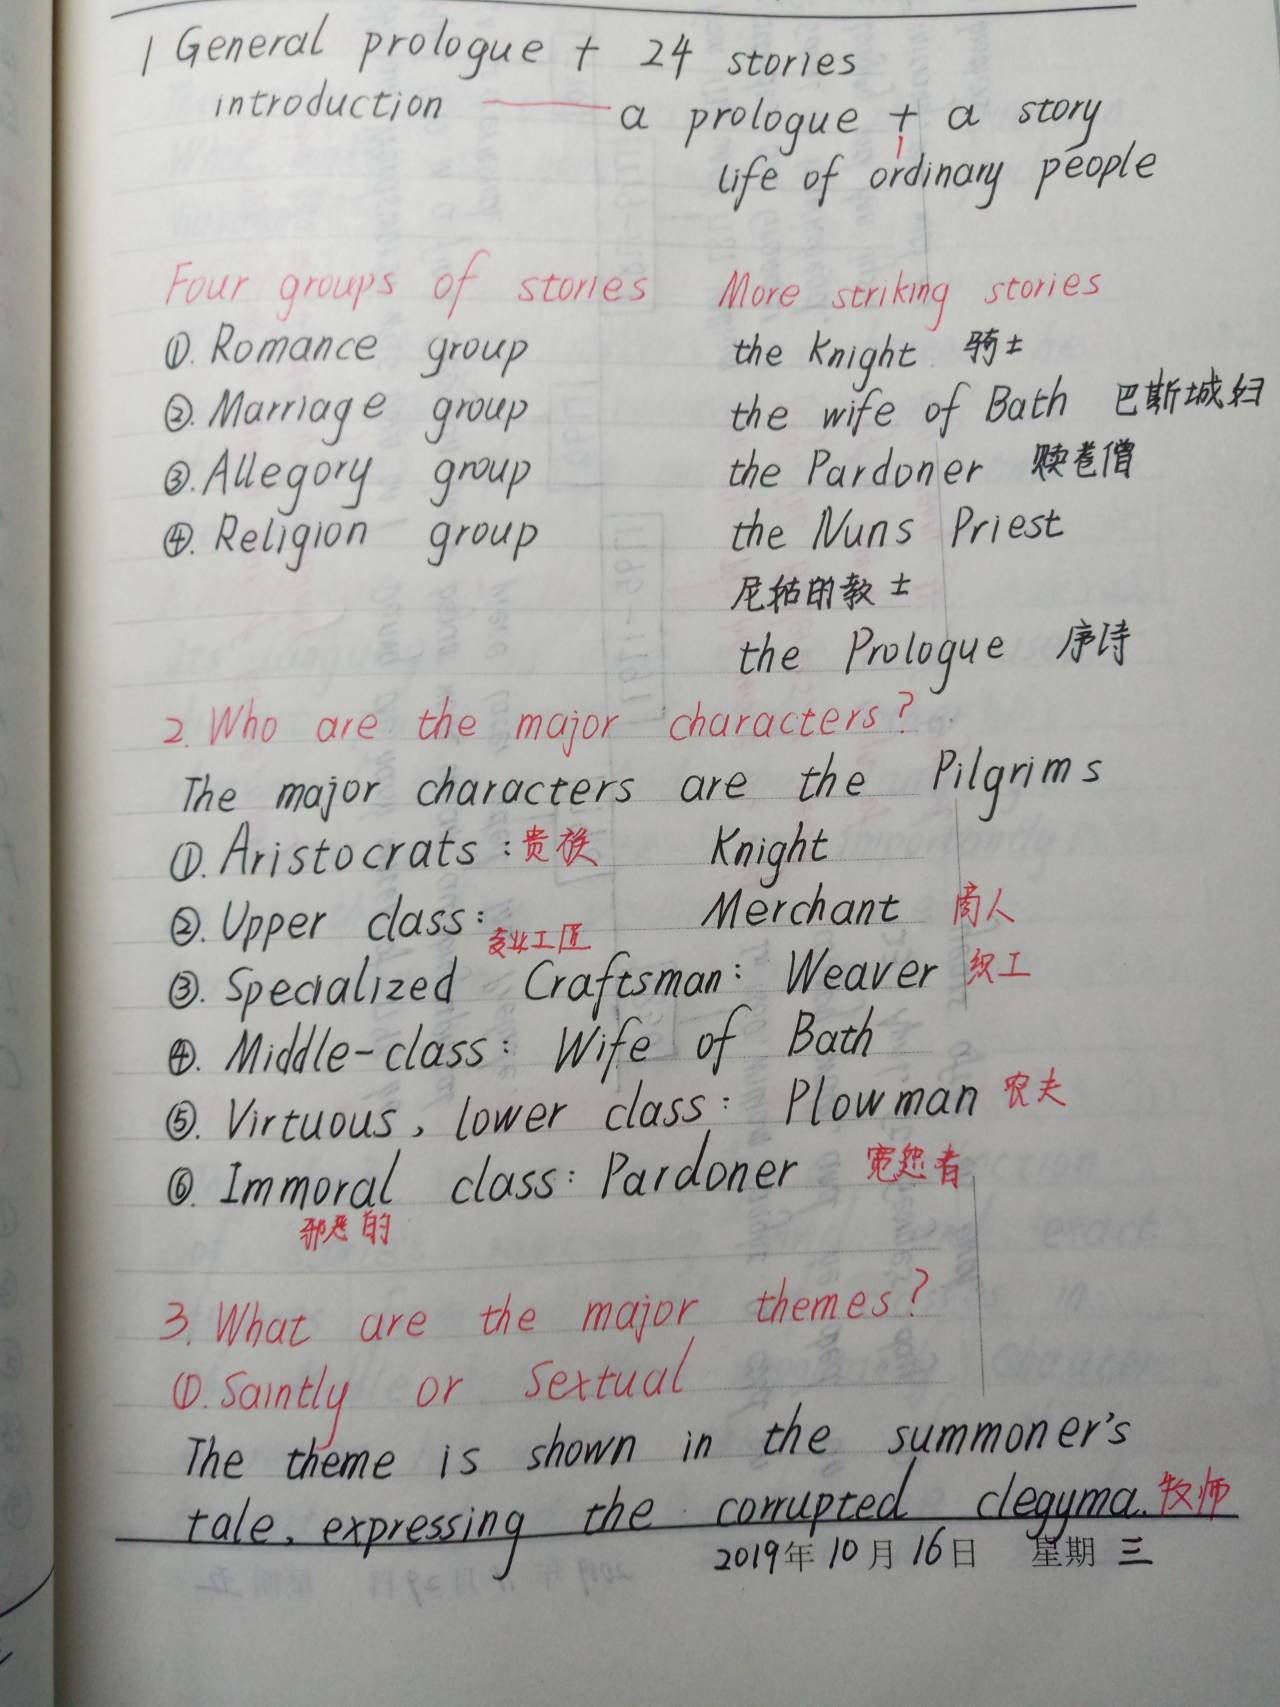 1 General prologue + 24 stories
introduction —— a prologue + a story
life of ordinary people
Four groups of stories
①. Romance group
②. Marriage group
③. Allegory group
④. Religion group
More striking stories
the Knight 骑士
the wife of Bath 巴斯城妇
the Pardoner 赎卷僧
the Nuns Priest
尼姑的教士
the Prologue 序诗
2. Who are the major characters?
The major characters are the Pilgrims
①. Aristocrats: 贵族 Knight
②. Upper class: Merchant 商人
专业工匠
③. Specialized Craftsman: Weaver 织工
④. Middle-class: Wife of Bath
⑤. Virtuous, lower class: Plowman 农夫
⑥. Immoral class: Pardoner 宽恕者
邪恶的
3. What are the major themes?
①. Saintly or Sextual
The theme is shown in the summoner's
tale, expressing the corrupted clegyma. 牧师
2019年10月16日 星期三